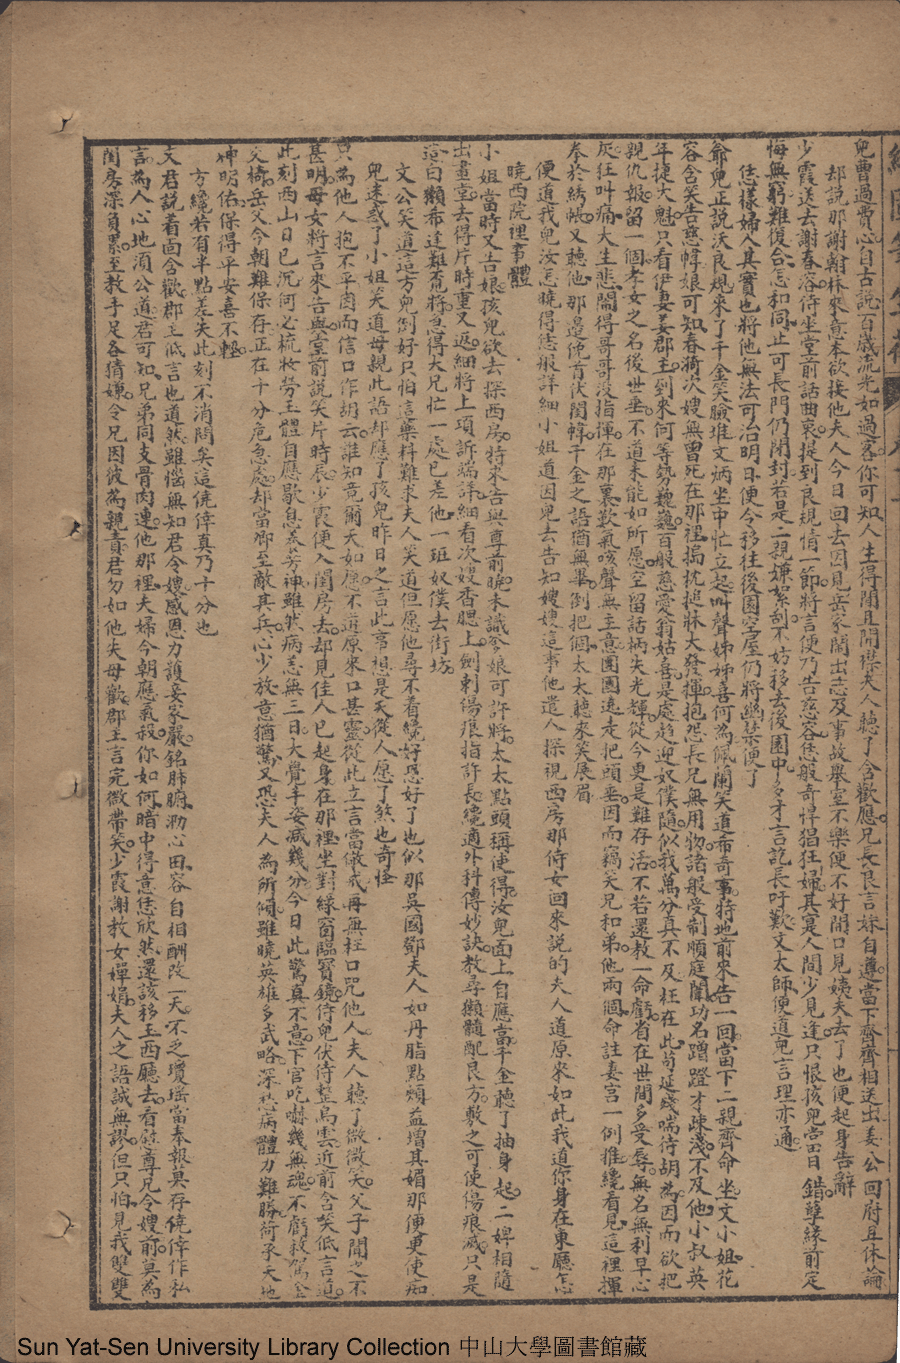 兒曹過費心自古說百歲流光如過客你可知人生得閒且開襟夫人聽了含歡應兄長良言妹自遵當下齊齊相送出姜公回府且休論
却說那謝翰林來意本欲接他夫人今日回去因見岳家鬧出志及事故舉室不樂便不好開口見姨夫去了也便起身告辭
少霞送去謝春容侍坐堂前話曲衷提到良規情一節將言便乃告慈容恁般奇悍猖狂婦其寔人間少見逢只恨孩兒當日錯孽緣前定
悔無窮難復合怎和同止可長門仍閉封若是一親嫌絮刮不妨移去後園中夕才言訖長吁歎文太師便道兒言理亦通
恁樣婦人其實也將他無法可治明日便令移往後園空屋仍將幽禁便了
爺兒正說沃良規來了千金笑臉堆文炳坐中忙立起叫聲姊姊喜何為佩蘭笑道布奇事特地前來告一回當下二親齊命坐文小姐花
容含笑告慈幃娘可知春漪次嫂無留死在那裡搗枕搥牀大發揮抱怨長兄無用物諸般受制順庭闈功名蹭蹬才疎淺不及他小叔英
年捷大魁只有伊妻姜郡主到來何等勢巍巍百般慈愛翁姑喜是處趋迎奴僕隨似我萬分真不及枉在此苟延殘喘待胡為因而欲把
親仇報留一個孝女之名後世垂不道未能如所愿空留話柄失光輝從今更是難存活不若還教一命虧省在世間多受辱無名無利早心
灰狂叫痛大生悲鬧得哥哥沒指揮在那裏歎氣咳聲無主意團團遶走把頭垂因而竊笑兄和弟他兩個命註妻宮一例推纔看見這裡揮
拳於綉幌又聽他那邊俛首伏閨幃千金之語猶無畢倒把個太太聽來笑展眉
便道我兒汝怎曉得恁般詳細小姐道因兒去告知嫂嫂這事他遣人探視西房那侍女回來說的夫人道原來如此我道你身在東廳怎
曉西院裡事體
小姐當時又告娘孩兒欲去探西房特來告與尊前曉未識爹娘可許將太太點頭稱使得汝兒面上自應當千金聽了抽身起二婢相隨
出畫堂去得片時重又返細將上項訴端詳細看次嫂香腮上劍刺傷痕指許長纔適外科傳妙訣教尋獺髓配良方敷之可使傷痕滅只是
這白獺希逢難覓將急得大兄忙一處已差他一班奴僕去街坊
文公笑道這方兒倒好只怕這藥料難求夫人笑道但愿他尋不看纔好恐好了也似那吳國鄧夫人如丹脂點頰益增其媚那便更使痴
兒迷惑了小姐笑道母親此語却應了孩兒昨日之言此事想是天從人愿了煞也奇怪
只為他人抱不平肉而信口作胡云誰知竟爾天如愿不近原來口甚靈從此立言當儆戒再無枉口咒他人夫人聽了微微笑父子聞之不
甚明母女將言來告與堂前說笑片時辰少霞便入閨房去却見佳人已起身在那裡坐對綠窗臨寶鏡侍兒伏侍整烏雲近前含笑低言道
此刻西山日已沉何必梳妝勞玉體自應歇息養芳神雖然病恙無三日大覺丰姿減幾分今日此驚真不意下官吃嚇幾無魂不虧救駕金
交椅岳父今朝難保存正在十分危急處却當御至敵其兵心少放意猶驚又恐夫人為所傾雖曉英雄多武略深愁病體力難勝荷承天地
神明佑保得平安喜不輕
方纔若有半點差失此刻不消問矣這僥倖真乃十分也
文君說着面含歡郡主低言也道然雖惱無知君令嫂感恩力護妾家嚴銘肺腑泐心田容自相酬改一天不乏瓊瑤當奉報莫存僥倖作私
言為人心地湏公道君可知兄弟同支骨肉連他那裡夫婦今朝應氣殺你如何暗中得意恁欣然還該移玉西廳去看慰尊兄令嫂前莫為
閨房深負累至教手足各猜嫌令兄因彼為親責君勿如他失母歡郡主言完微帶笑少霞謝教女嬋娟夫人之語誠無謬但只怕見我雙雙
Sun Yat-Sen University Library Collection 中山大學圖書館藏